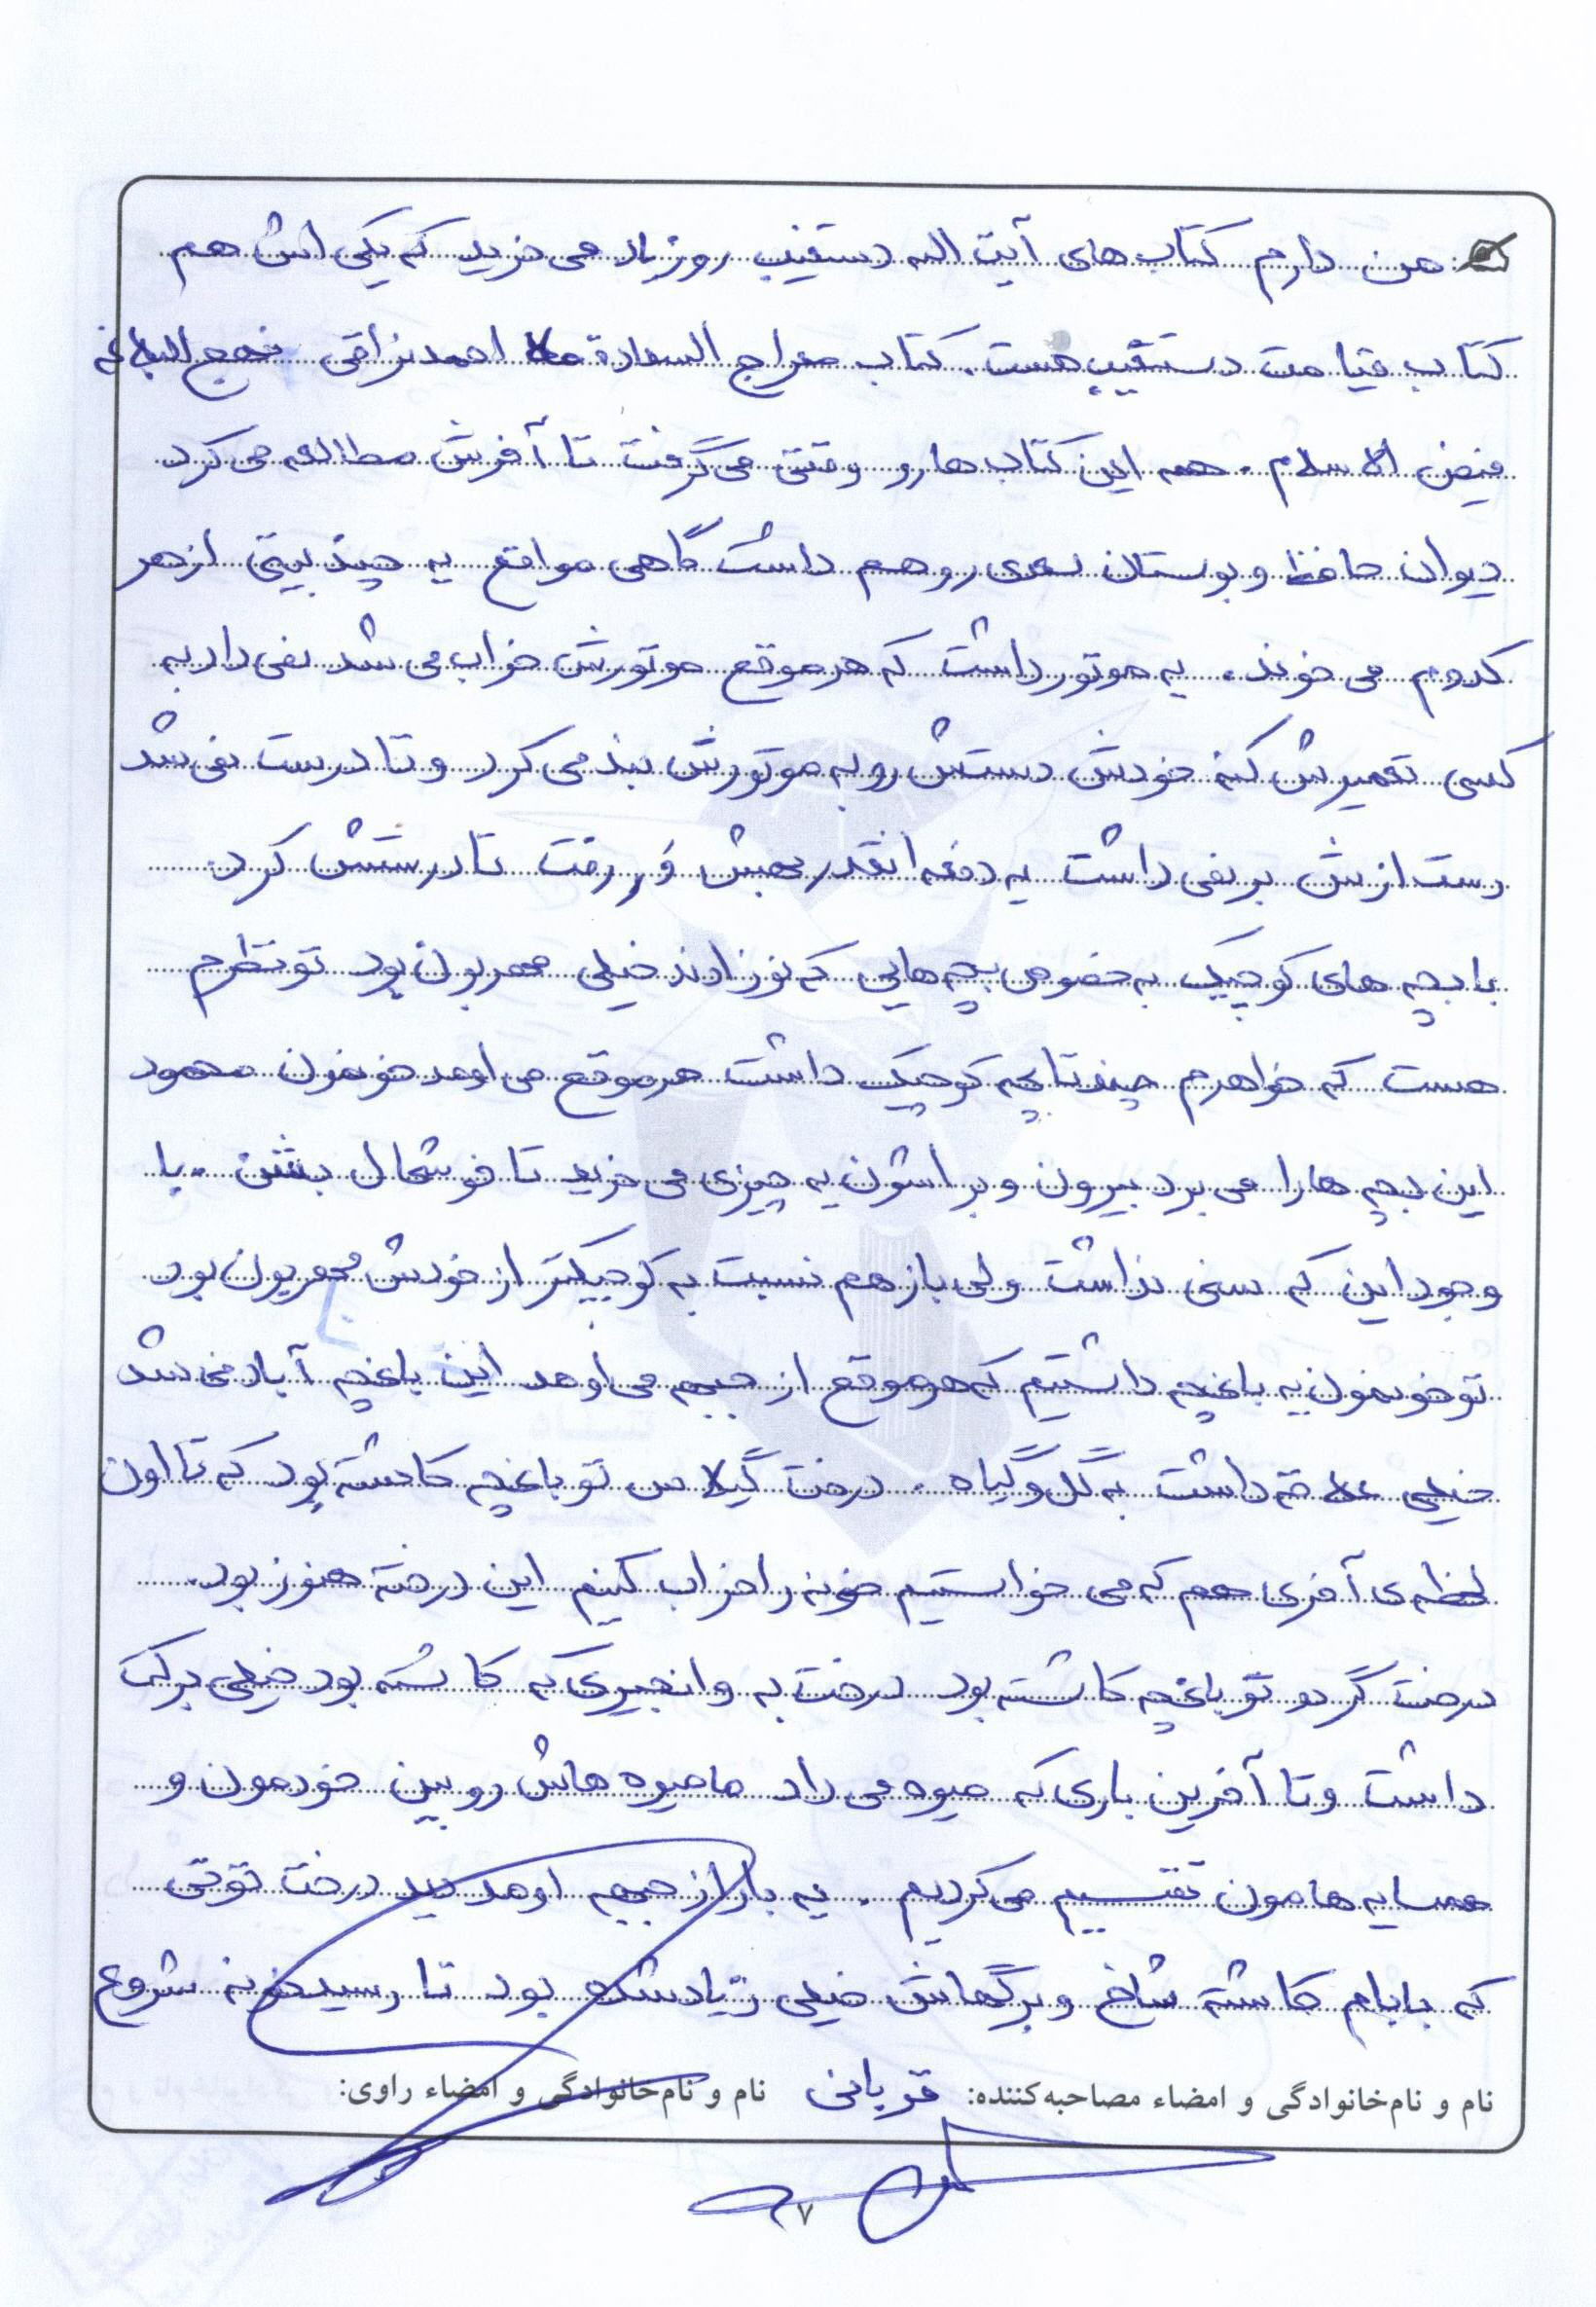 من دارم کتاب های آیت اله دستغیب رو زیاد می خرید که یکی اش هم
کتاب قیامت دستغیب هست. کتاب معراج السعادة ملا احمد نراقی نهج البلاغه
فیض الاسلام. همه این کتاب ها رو وقتی می گرفت تا آخرش مطالعه می کرد
دیوان حافظ و بوستان سعدی رو هم داشت گاهی مواقع یه چند بیتی از هر
کدوم می خوند. یه موتور داشت که هر موقع موتورش خراب می شد نمی داد به
کسی تعمیرش کنه خودش دستش رو به موتورش بند می کرد و تا درست نمی شد
دست ازش بر نمی داشت یه دفعه انقدر بهش ور رفت تا درستش کرد.
با بچه های کوچیک به خصوص بچه هایی که نوزادند خیلی مهربون بود تو نظرم
هست که خواهرم چند تا بچه کوچیک داشت هر موقع می اومد خونمون محمود
این بچه ها را می برد بیرون و براشون یه چیزی می خرید تا خوشحال بشن. با
وجود این که سنی نداشت ولی باز هم نسبت به کوچیکتر از خودش مهربون بود
تو خونمون یه باغچه داشتیم که هر موقع از جبهه می اومد این باغچه آباد می شد
خیلی علاقه داشت به گل و گیاه. درخت گیلاس تو باغچه کاشته بود که تا اون
لحظه ی آخری هم که می خواستیم خونه را خراب کنیم این درخته هنوز بود.
درخت گردو تو باغچه کاشته بود درخت به و انجیری که کاشته بود خیلی برکت
داشت و تا آخرین باری که میوه می داد ما میوه هاش رو بین خودمون و
همسایه هامون تقسیم می کردیم. یه بار از جبهه اومد دید درخت توتی
که بابام کاشته شاخ و برگهاش خیلی زیاد شده بود تا رسید خونه شروع
نام و نام‌خانوادگی و امضاء مصاحبه‌کننده: قربانی نام و نام‌خانوادگی و امضاء راوی:
۷